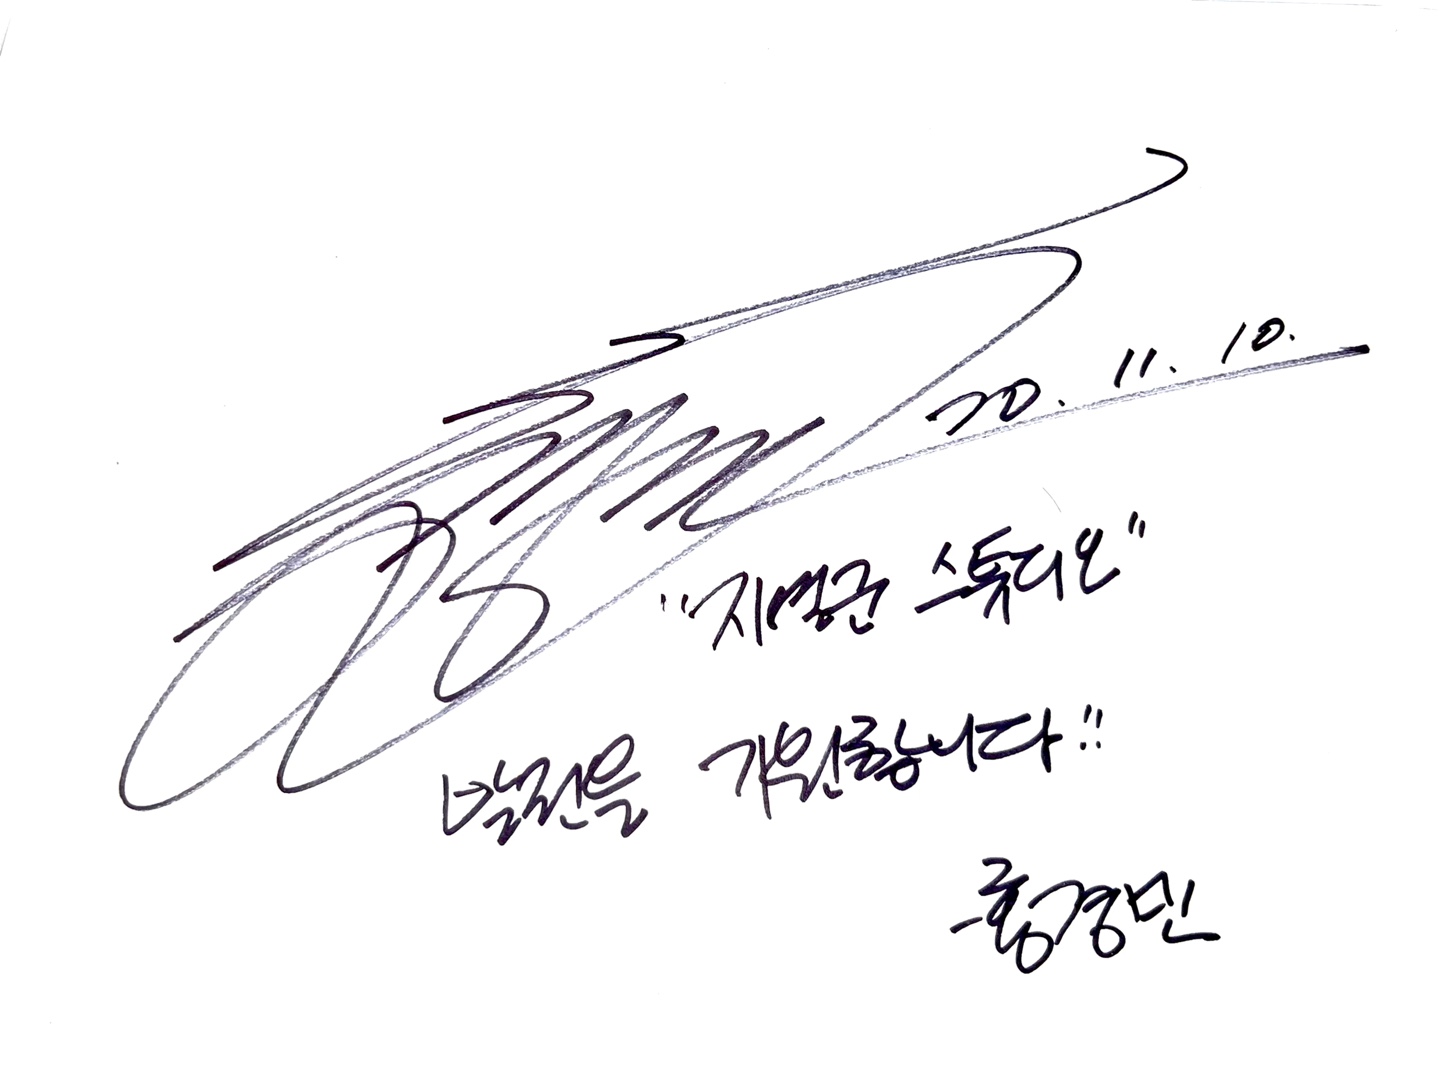 20. 11. 10.
"지명군 스튜디오"
발전을 기원합니다!!
홍경민